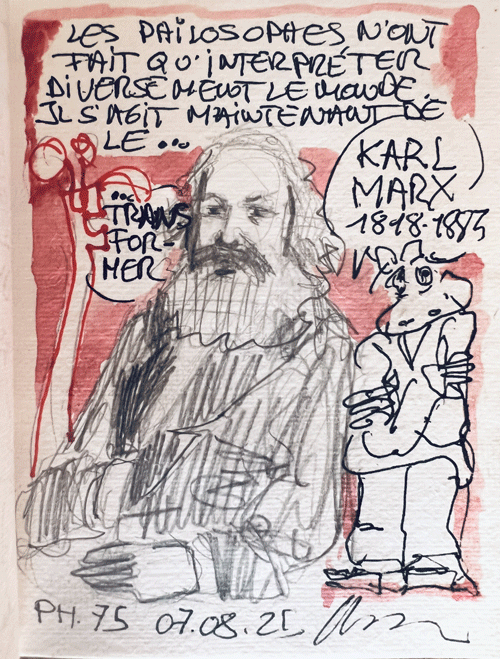 LES PHILOSOPHES N'ONT
FAIT QU'INTERPRÉTER
DIVERSEMENT LE MONDE.
IL S'AGIT MAINTENANT DE
LE...
...TRANS
FOR-
MER
KARL
MARX
1818-1883
PH. 75 07.08.25